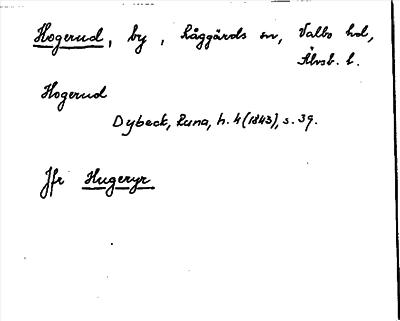 Hogerud, by, Råggärds sn, Valbo hd,
Älvsb. l.
Hogerud
Dybeck, Runa, h. 4 (1843), s. 39.
Jfr Hugeryr